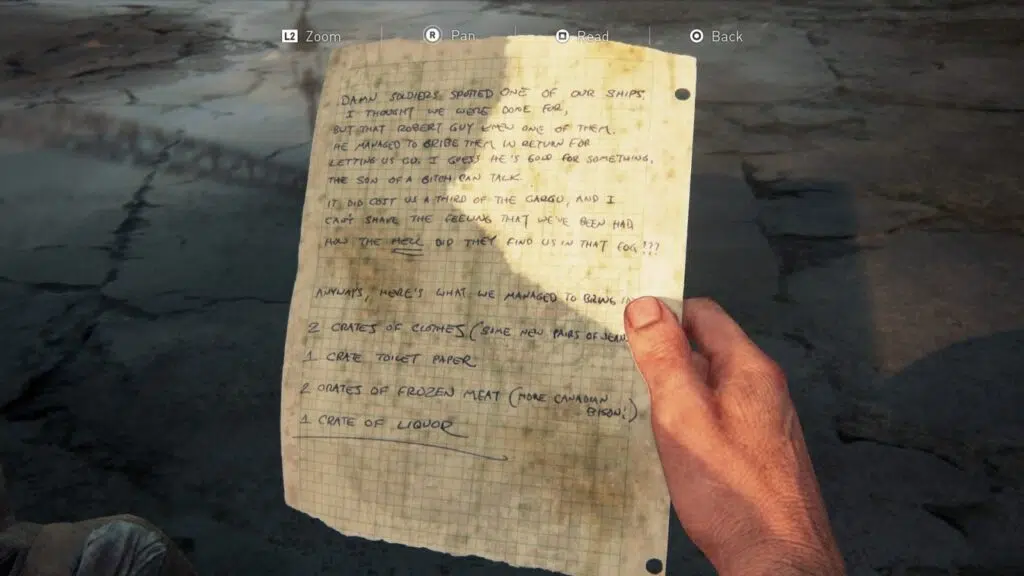 L2 Zoom R Pan Read Back
DAMN SOLDIERS SPOTTED ONE OF OUR SHIPS.
I THOUGHT WE WERE DONE FOR,
BUT THAT ROBERT GUY KNEW ONE OF THEM.
HE MANAGED TO BRIBE THEM IN RETURN FOR
LETTING US GO. I GUESS HE'S GOOD FOR SOMETHING,
THE SON OF A BITCH CAN TALK.
IT DID COST US A THIRD OF THE CARGO, AND I
CAN'T SHAKE THE FEELING THAT WE'VE BEEN HAD,
HOW THE HELL DID THEY FIND US IN THAT FOG!??
ANYWAYS, HERE'S WHAT WE MANAGED TO BRING IN
2 CRATES OF CLOTHES (SOME NEW PAIRS OF JEANS
1 CRATE TOILET PAPER
2 CRATES OF FROZEN MEAT (MORE CANADIAN
BISON!)
1 CRATE OF LIQUOR